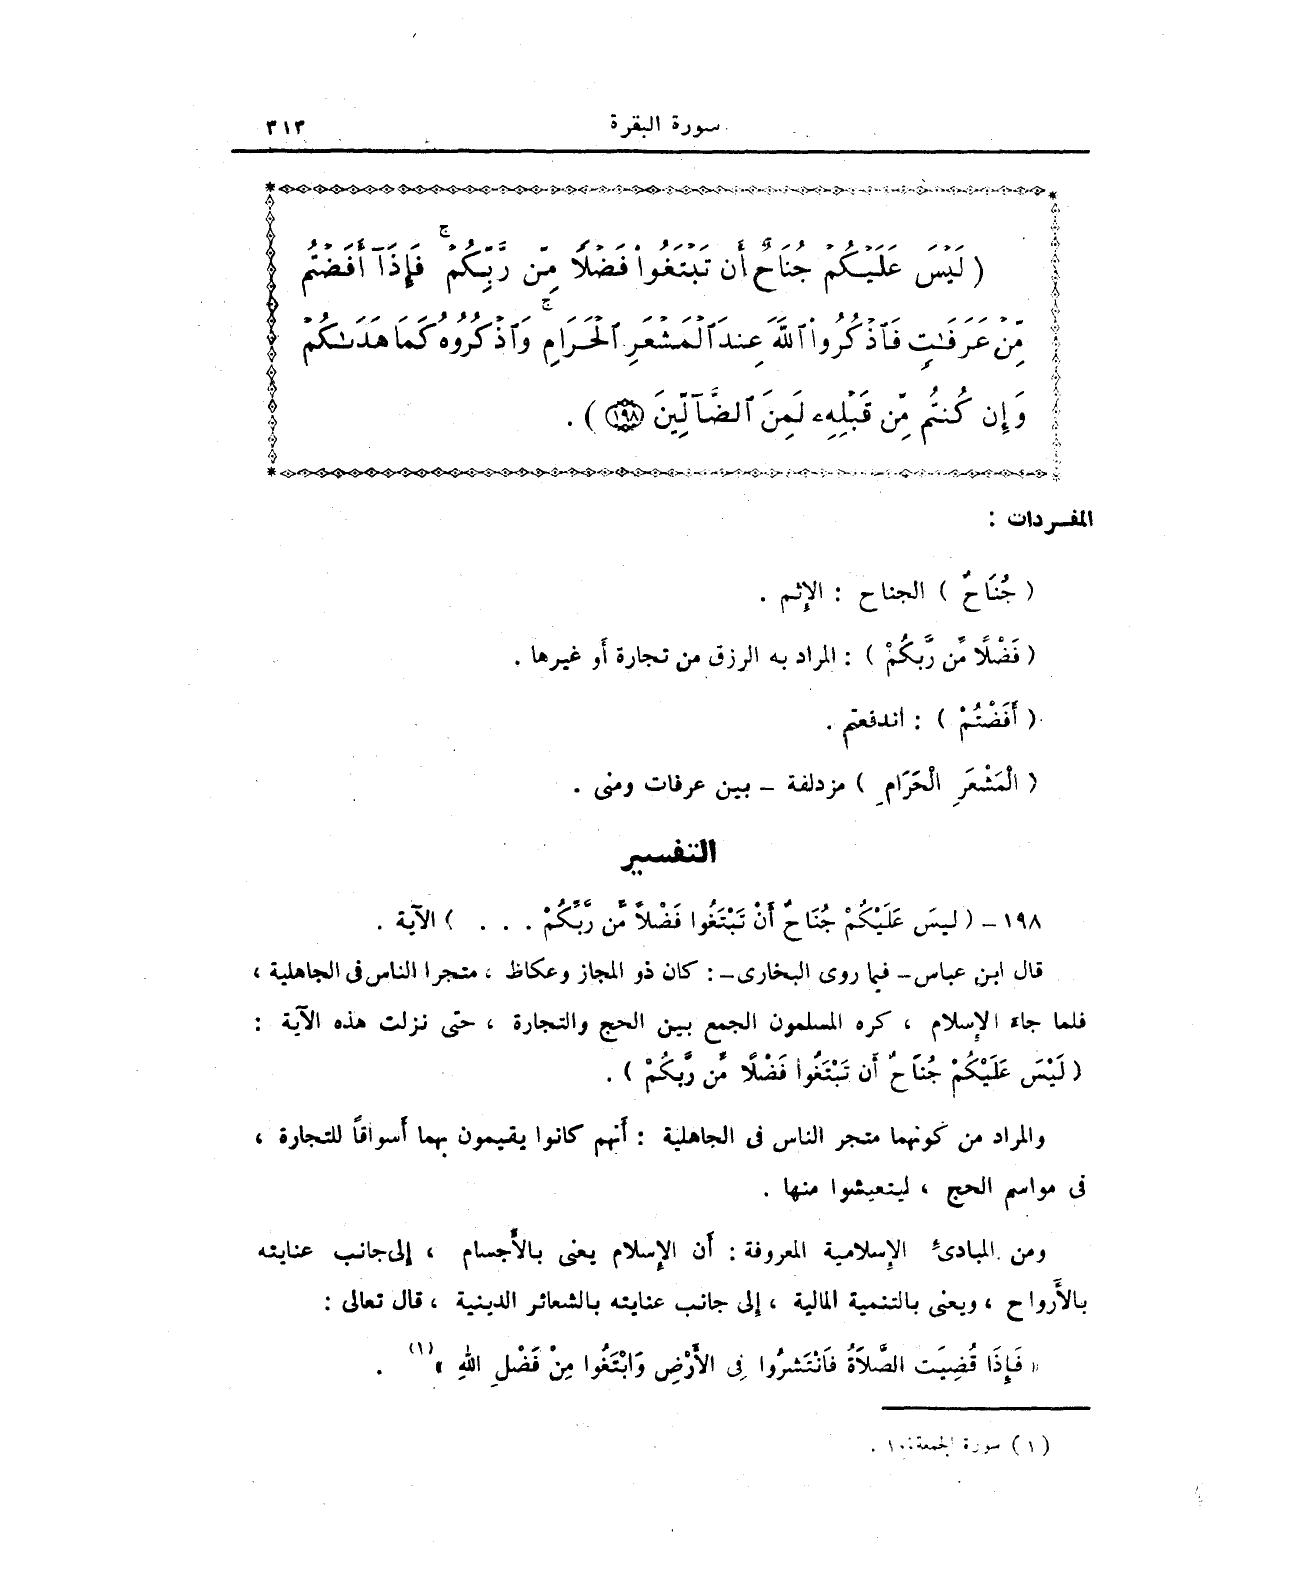 سورة البقرة ٣١٣
( لَيْسَ عَلَيْكُمْ جُنَاحٌ أَن تَبْتَغُوا۟ فَضْلًا مِّن رَّبِّكُمْ ۚ فَإِذَآ أَفَضْتُم
مِّنْ عَرَفَٰتٍ فَٱذْكُرُوا۟ ٱللَّهَ عِندَ ٱلْمَشْعَرِ ٱلْحَرَامِ ۚ وَٱذْكُرُوهُ كَمَا هَدَىٰكُمْ
وَإِن كُنتُم مِّن قَبْلِهِۦ لَمِنَ ٱلضَّآلِّينَ ﴿١٩٨﴾ ) .
المفردات :
( جُنَاحٌ ) الجناح : الإِثم .
( فَضْلًا مِّن رَّبِّكُمْ ) : المراد به الرزق من تجارة أَو غيرها .
( أَفَضْتُمْ ) : اندفعتم .
( الْمَشْعَرِ الْحَرَامِ ) مزدلفة ــ بين عرفات ومنى .
التفسير
١٩٨ ــ ( ليسَ عَلَيْكُمْ جُنَاحٌ أَنْ تَبْتَغُوا فَضْلاً مِّن رَّبِّكُمْ . . . ) الآية .
قال ابن عباس ــ فيما روى البخارى ــ : كان ذو المجاز وعكاظ ، متجرا الناس فى الجاهلية ،
فلما جاءَ الإِسلام ، كره المسلمون الجمع بين الحج والتجارة ، حتى نزلت هذه الآية :
( لَيْسَ عَلَيْكُمْ جُنَاحٌ أَن تَبْتَغُوا فَضْلًا مِّن رَّبِّكُمْ ) .
والمراد من كونهما متجر الناس فى الجاهلية : أَنهم كانوا يقيمون بهما أَسواقاً للتجارة ،
فى مواسم الحج ، ليتعيشوا منها .
ومن المبادئ الإِسلامية المعروفة : أَن الإِسلام يعنى بالأَجسام ، إلى جانب عنايته
بالأَرواح ، ويعنى بالتنمية المالية ، إلى جانب عنايته بالشعائر الدينية ، قال تعالى :
« فَإِذَا قُضِيَت الصَّلاَةُ فَانْتَشرُوا فِى الأَرْضِ وَابْتَغُوا مِنْ فَضْلِ اللهِ »(١) .
( ١ ) سورة الجمعة : ١٠ .